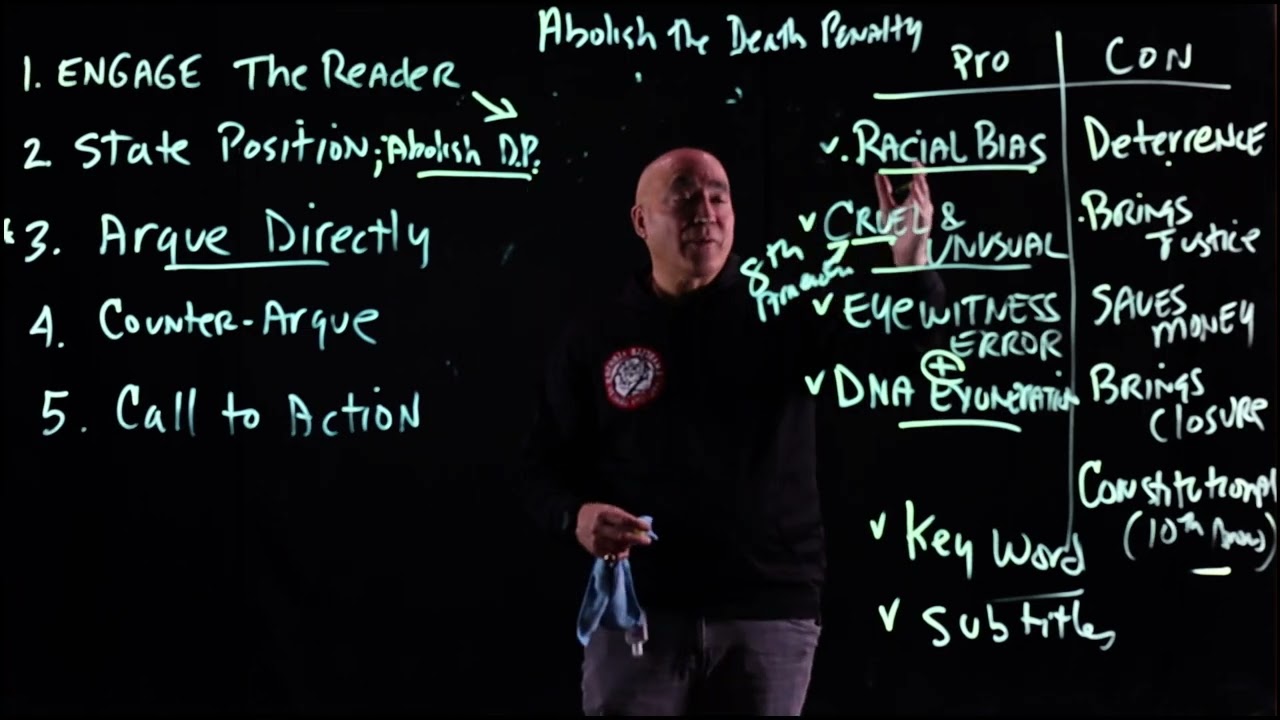 Abolish The Death Penalty
1. ENGAGE The Reader
2. State Position; Abolish D.P.
3. Argue Directly
4. Counter-Argue
5. Call to Action
Pro
RACIAL BIAS
CRUEL &
UNUSUAL
8th
EyeWITNESS
ERROR
DNA
+
Key Word
Subtitles
CON
Deterrence
BRINGS
Justice
SAVES
MONEY
BRINGS
CLOSURE
Constitutional
(10th